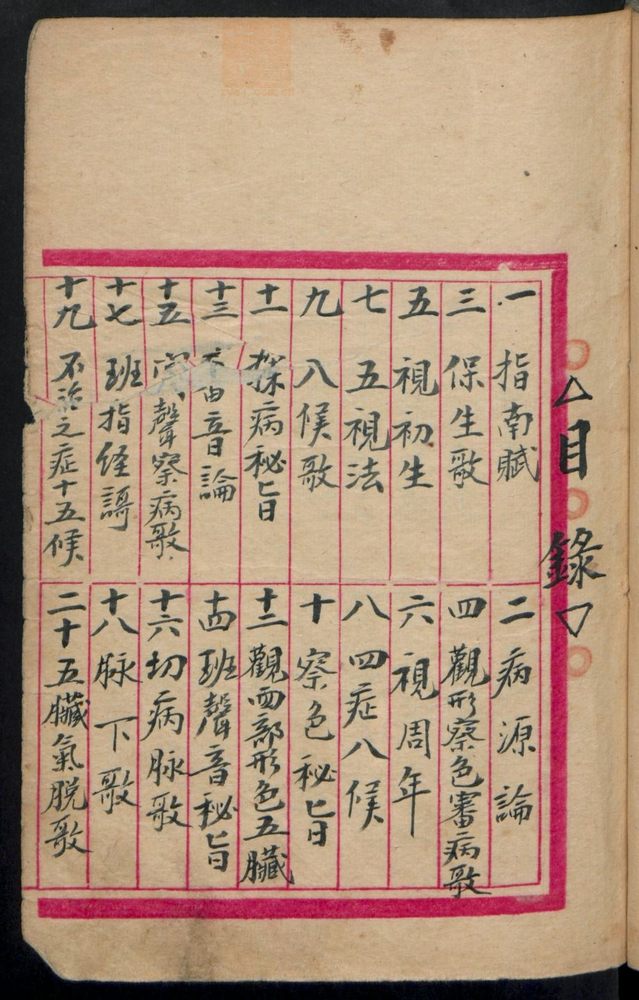 △目錄▽
一 指南賦
二 病源論
三 保生歌
四 觀形察色審病歌
五 視初生
六 視周年
七 五視法
八 四症八候
九 八候歌
十 察色秘旨
十一 探病秘旨
十二 觀面部形色五臟
十三 音論
十四 班聲音秘旨
十五 聲察病歌
十六 切病脉歌
十七 班指經謌
十八 脉下歌
十九 不治之症十五候
二十 五臟氣脫歌